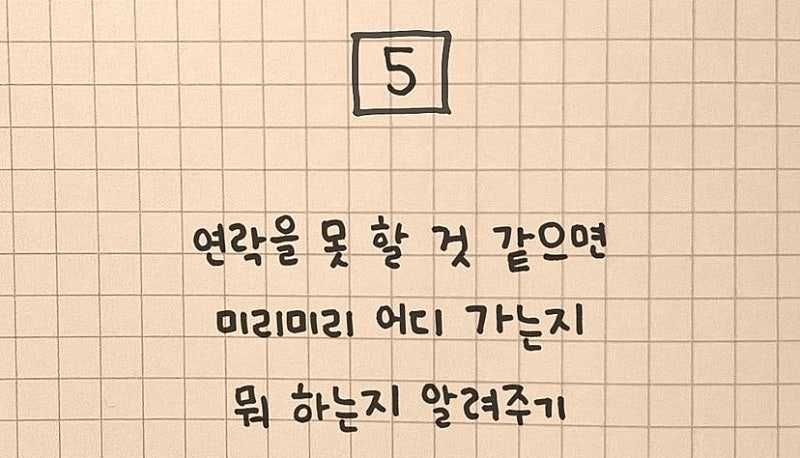 5
연락을 못 할 것 같으면
미리미리 어디 가는지
뭐 하는지 알려주기